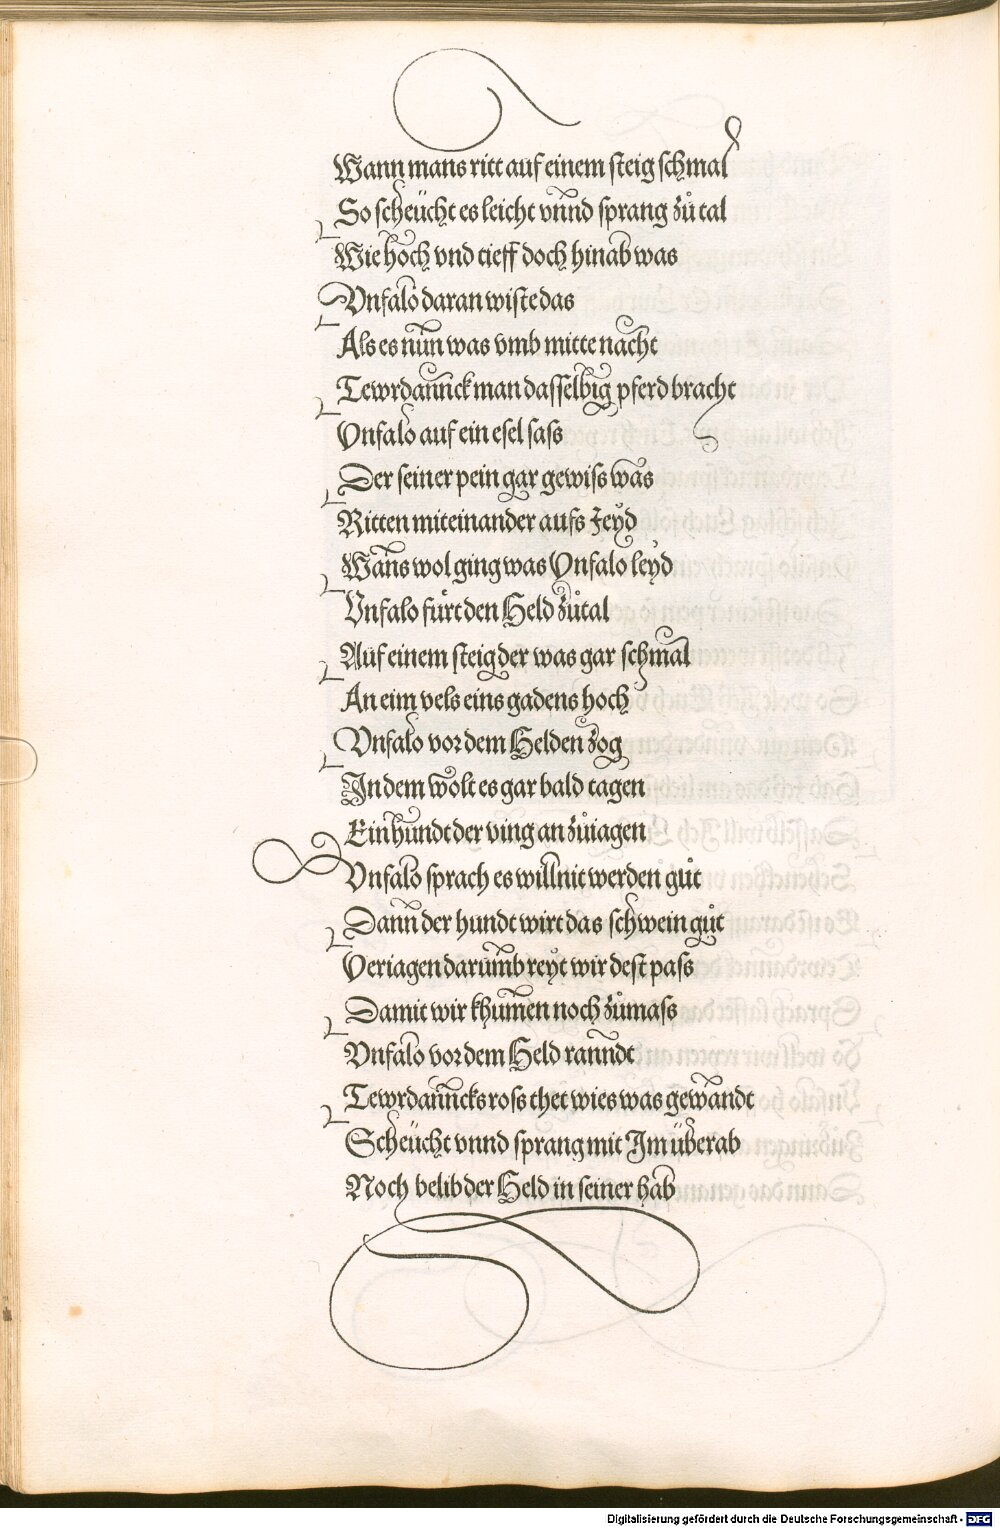 Wann mans ritt auf einem steig schmal
So scheücht es leicht vnnd sprang zů tal
Wie hoch vnd tieff doch hinab was
Vnfalo daran wiste das
Als es nun was vmb mitte nacht
Tewrdannck man dasselbig pferd bracht
Vnfalo auf ein esel sass
Der seiner pein gar gewiss was
Ritten miteinander aufs Jeyd
Wanns wol ging was Vnfalo leyd
Vnfalo fürt den Held zůtal
Auf einem steig der was gar schmal
An eim vels eins gadens hoch
Vnfalo vor dem Helden zog
In dem wolt es gar bald tagen
Ein hundt der ving an zůiagen
Vnfalo sprach es will nit werden gůt
Dann der hundt wirt das schwein gůt
Veriagen darumb reyt wir dest pass
Damit wir khumen noch zůmass
Vnfalo vor dem Held ranndt
Tewrdanncks ross thet wies was gewandt
Scheücht vnnd sprang mit Im überab
Noch belib der Held in seiner hab
Digitalisierung gefördert durch die Deutsche Forschungsgemeinschaft - DFG